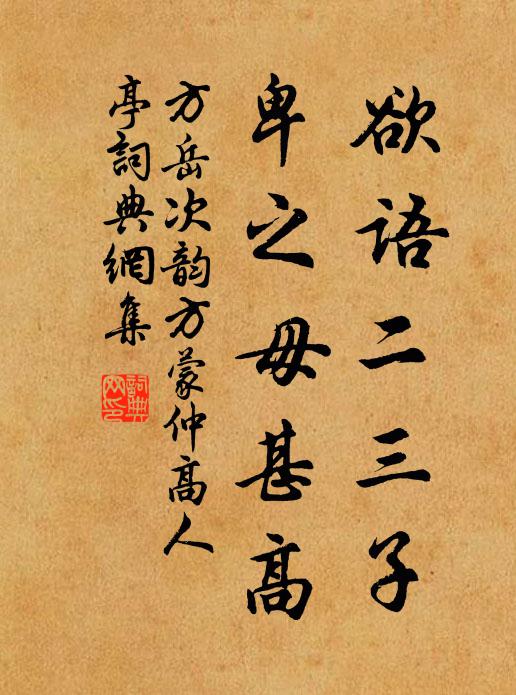 欲語二三子
卑之毋甚高
方岳次韵方蒙仲高人
亭詞典網集
詞典網印